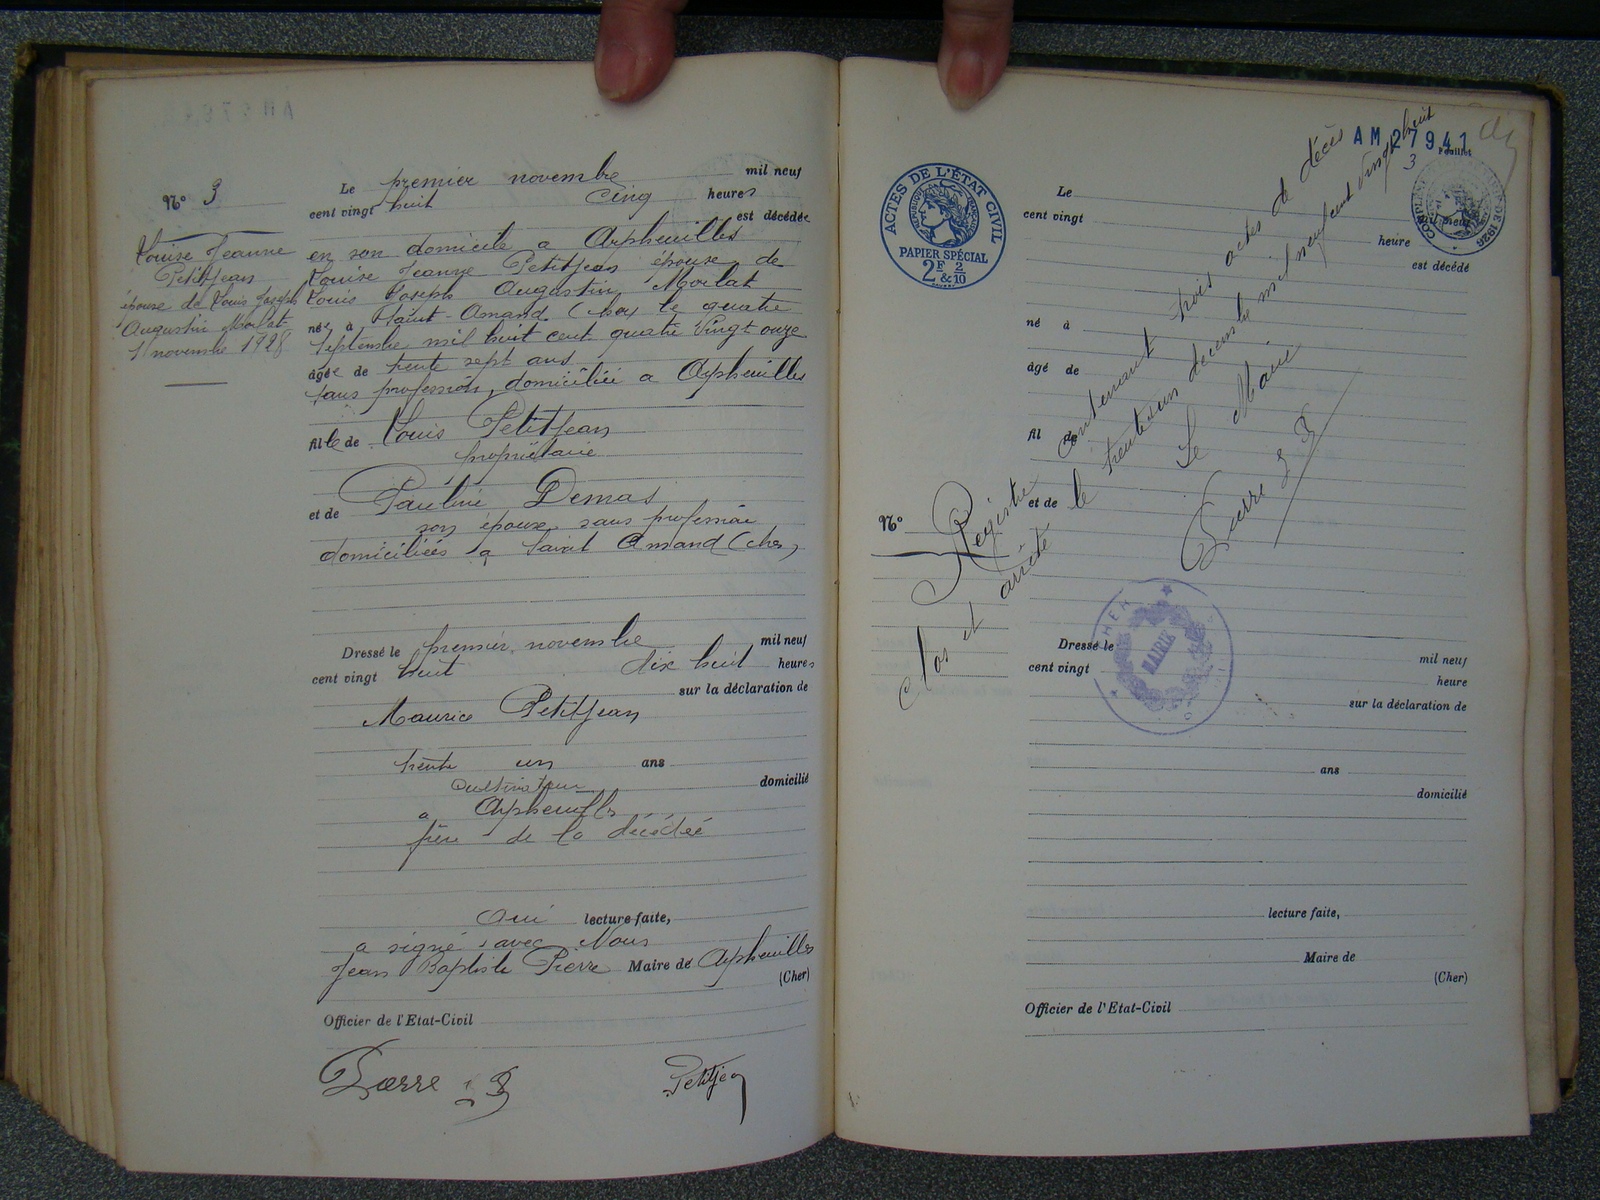 Nº 3
Louise Jeanne
Petitjean
épouse de Louis Joseph
Augustin Morlat
1 novembre 1928
Le premier novembre mil neuf
cent vingt huit cinq heures
est décédée
en son domicile a Arpheuilles
Louise Jeanne Petitjean épouse de
Louis Joseph Augustin Morlat
née à Saint-Amand (cher) le quatre
septembre mil huit cent quatre vingt onze
âgée de trente sept ans
sans profession, domiciliée a Arpheuilles
fille de Louis Petitjean
propriétaire
et de Pauline Demas
son épouse sans profession
domiciliés a Saint Amand (cher)
Dressé le premier novembre mil neuf
cent vingt huit dix huit heures
sur la déclaration de
Maurice Petitjean
trente un ans
cultivateur domicilié
a Arpheuilles
frère de la décédée
Qui lecture faite,
a signé avec Nous
Jean Baptiste Pierre Maire de Arpheuilles
(Cher)
Officier de l'Etat-Civil
Pierre J B Petitjean
AM 27941
Feuillet
3
ACTES DE L'ÉTAT CIVIL
RÉPUBLIQUE FRANÇAISE
PAPIER SPÉCIAL
2F & 2/10
Le
cent vingt
heure
est décédé
né à
âgé de
fil de
et de
Nº
Registre contenant trois actes de décès
clos et arrêté le trente un decembre mil neuf cent vingt huit
Le Maire
Pierre J B
CHER
MAIRIE
Dressé le mil neuf
cent vingt heure
sur la déclaration de
ans
domicilié
lecture faite,
Maire de
(Cher)
Officier de l'Etat-Civil